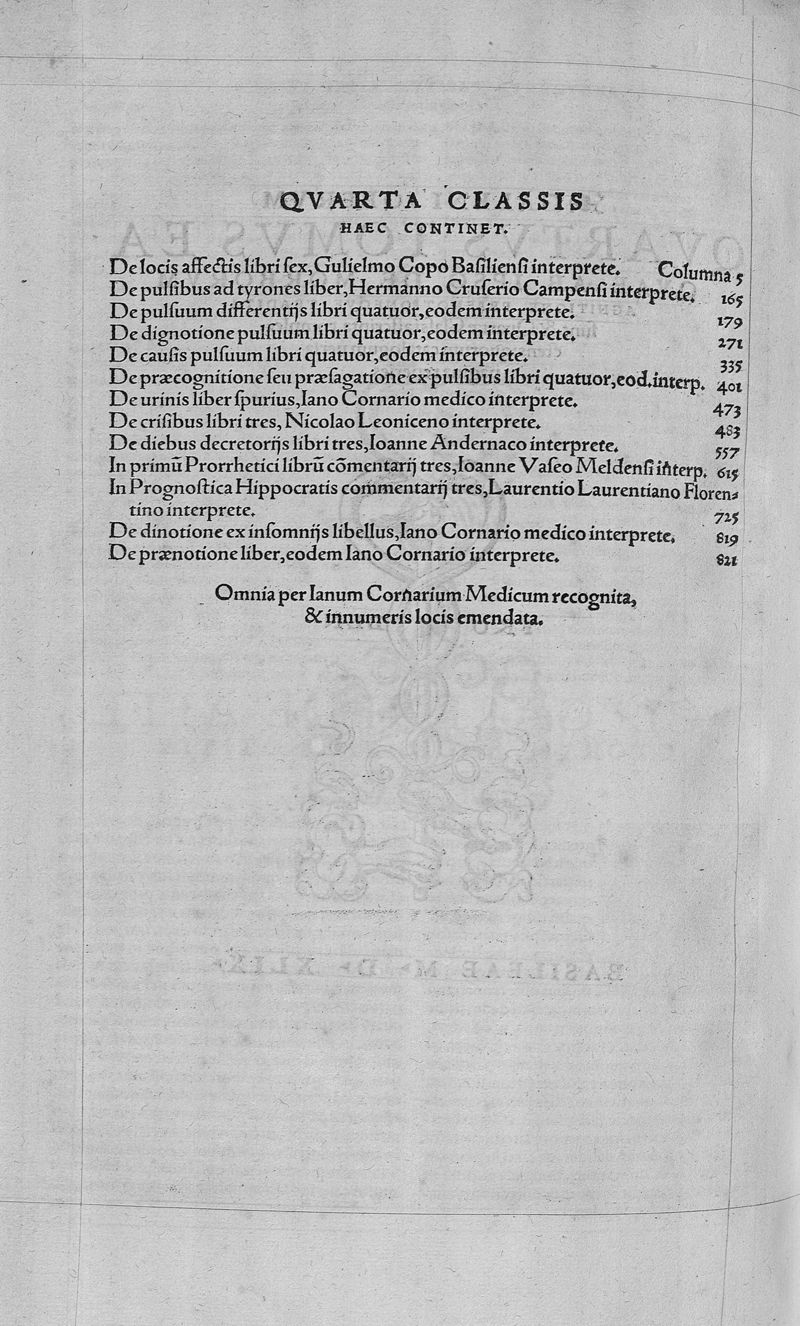 QVARTA CLASSIS
HAEC CONTINET.
De locis affectis libri ſex, Gulielmo Copo Baſilienſi interprete. Columna 5
De pulſibus ad tyrones liber, Hermanno Cruſerio Campenſi interprete. 165
De pulſuum differentijs libri quatuor, eodem interprete. 179
De dignotione pulſuum libri quatuor, eodem interprete. 271
De cauſis pulſuum libri quatuor, eodem interprete. 335
De præcognitione ſeu præſagatione ex pulſibus libri quatuor, eod. interp. 401
De urinis liber ſpurius, Iano Cornario medico interprete. 473
De criſibus libri tres, Nicolao Leoniceno interprete. 483
De diebus decretorijs libri tres, Ioanne Andernaco interprete. 557
In primũ Prorrhetici librũ cõmentarij tres, Ioanne Vaſeo Meldenſi interp. 615
In Prognoſtica Hippocratis commentarij tres, Laurentio Laurentiano Floren⸗
tino interprete. 725
De dinotione ex inſomnijs libellus, Iano Cornario medico interprete. 819
De prænotione liber, eodem Iano Cornario interprete. 821
Omnia per Ianum Cornarium Medicum recognita,
& innumeris locis emendata.